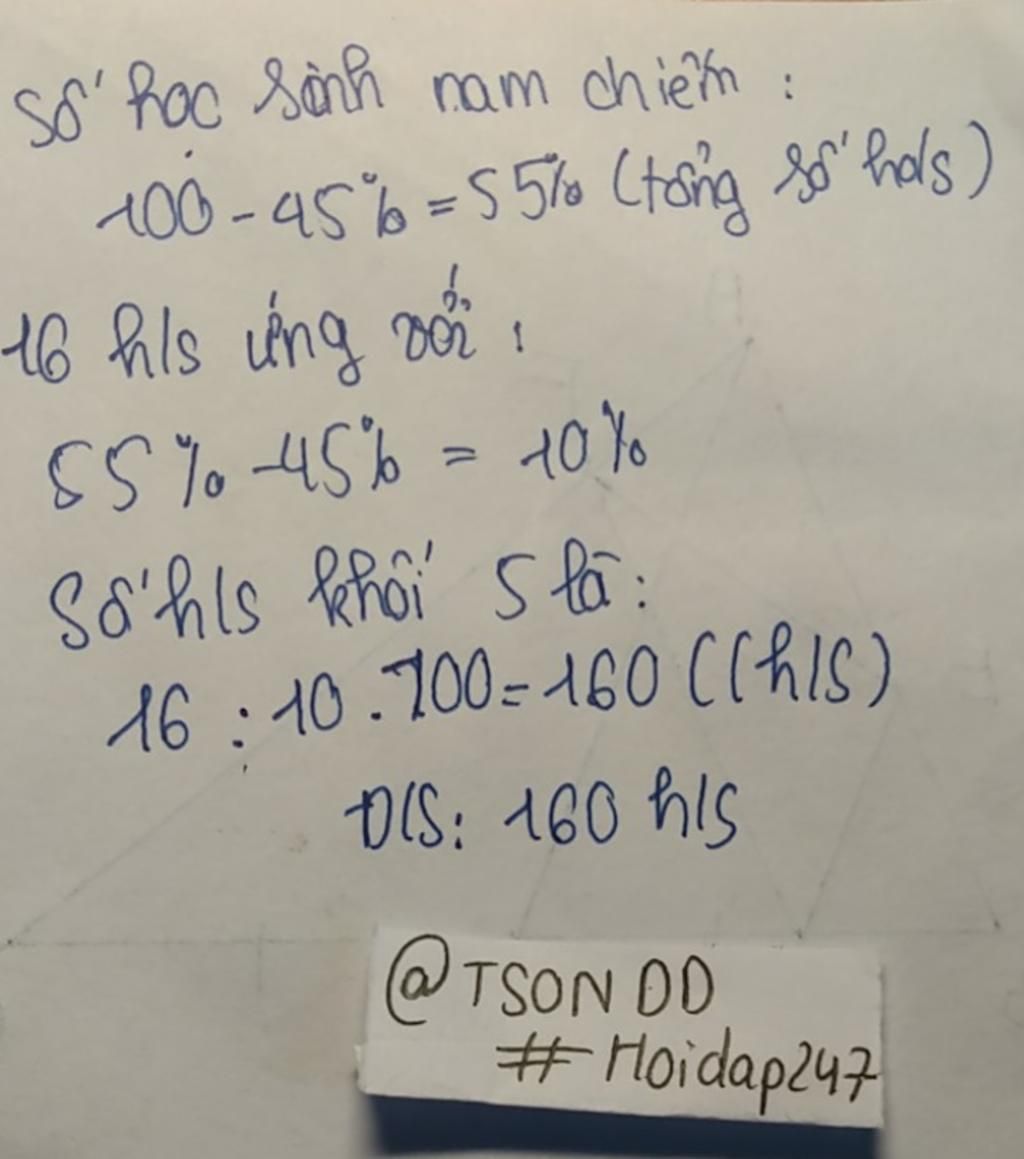 Số học sinh nam chiếm :
100 - 45% = 55% (tổng số h/s)
16 h/s ứng với :
55% - 45% = 10%
Số h/s khối 5 là :
16 : 10 . 100 = 160 ((h/s)
Đ/S: 160 h/s
@TSON DD
# Hoidap247